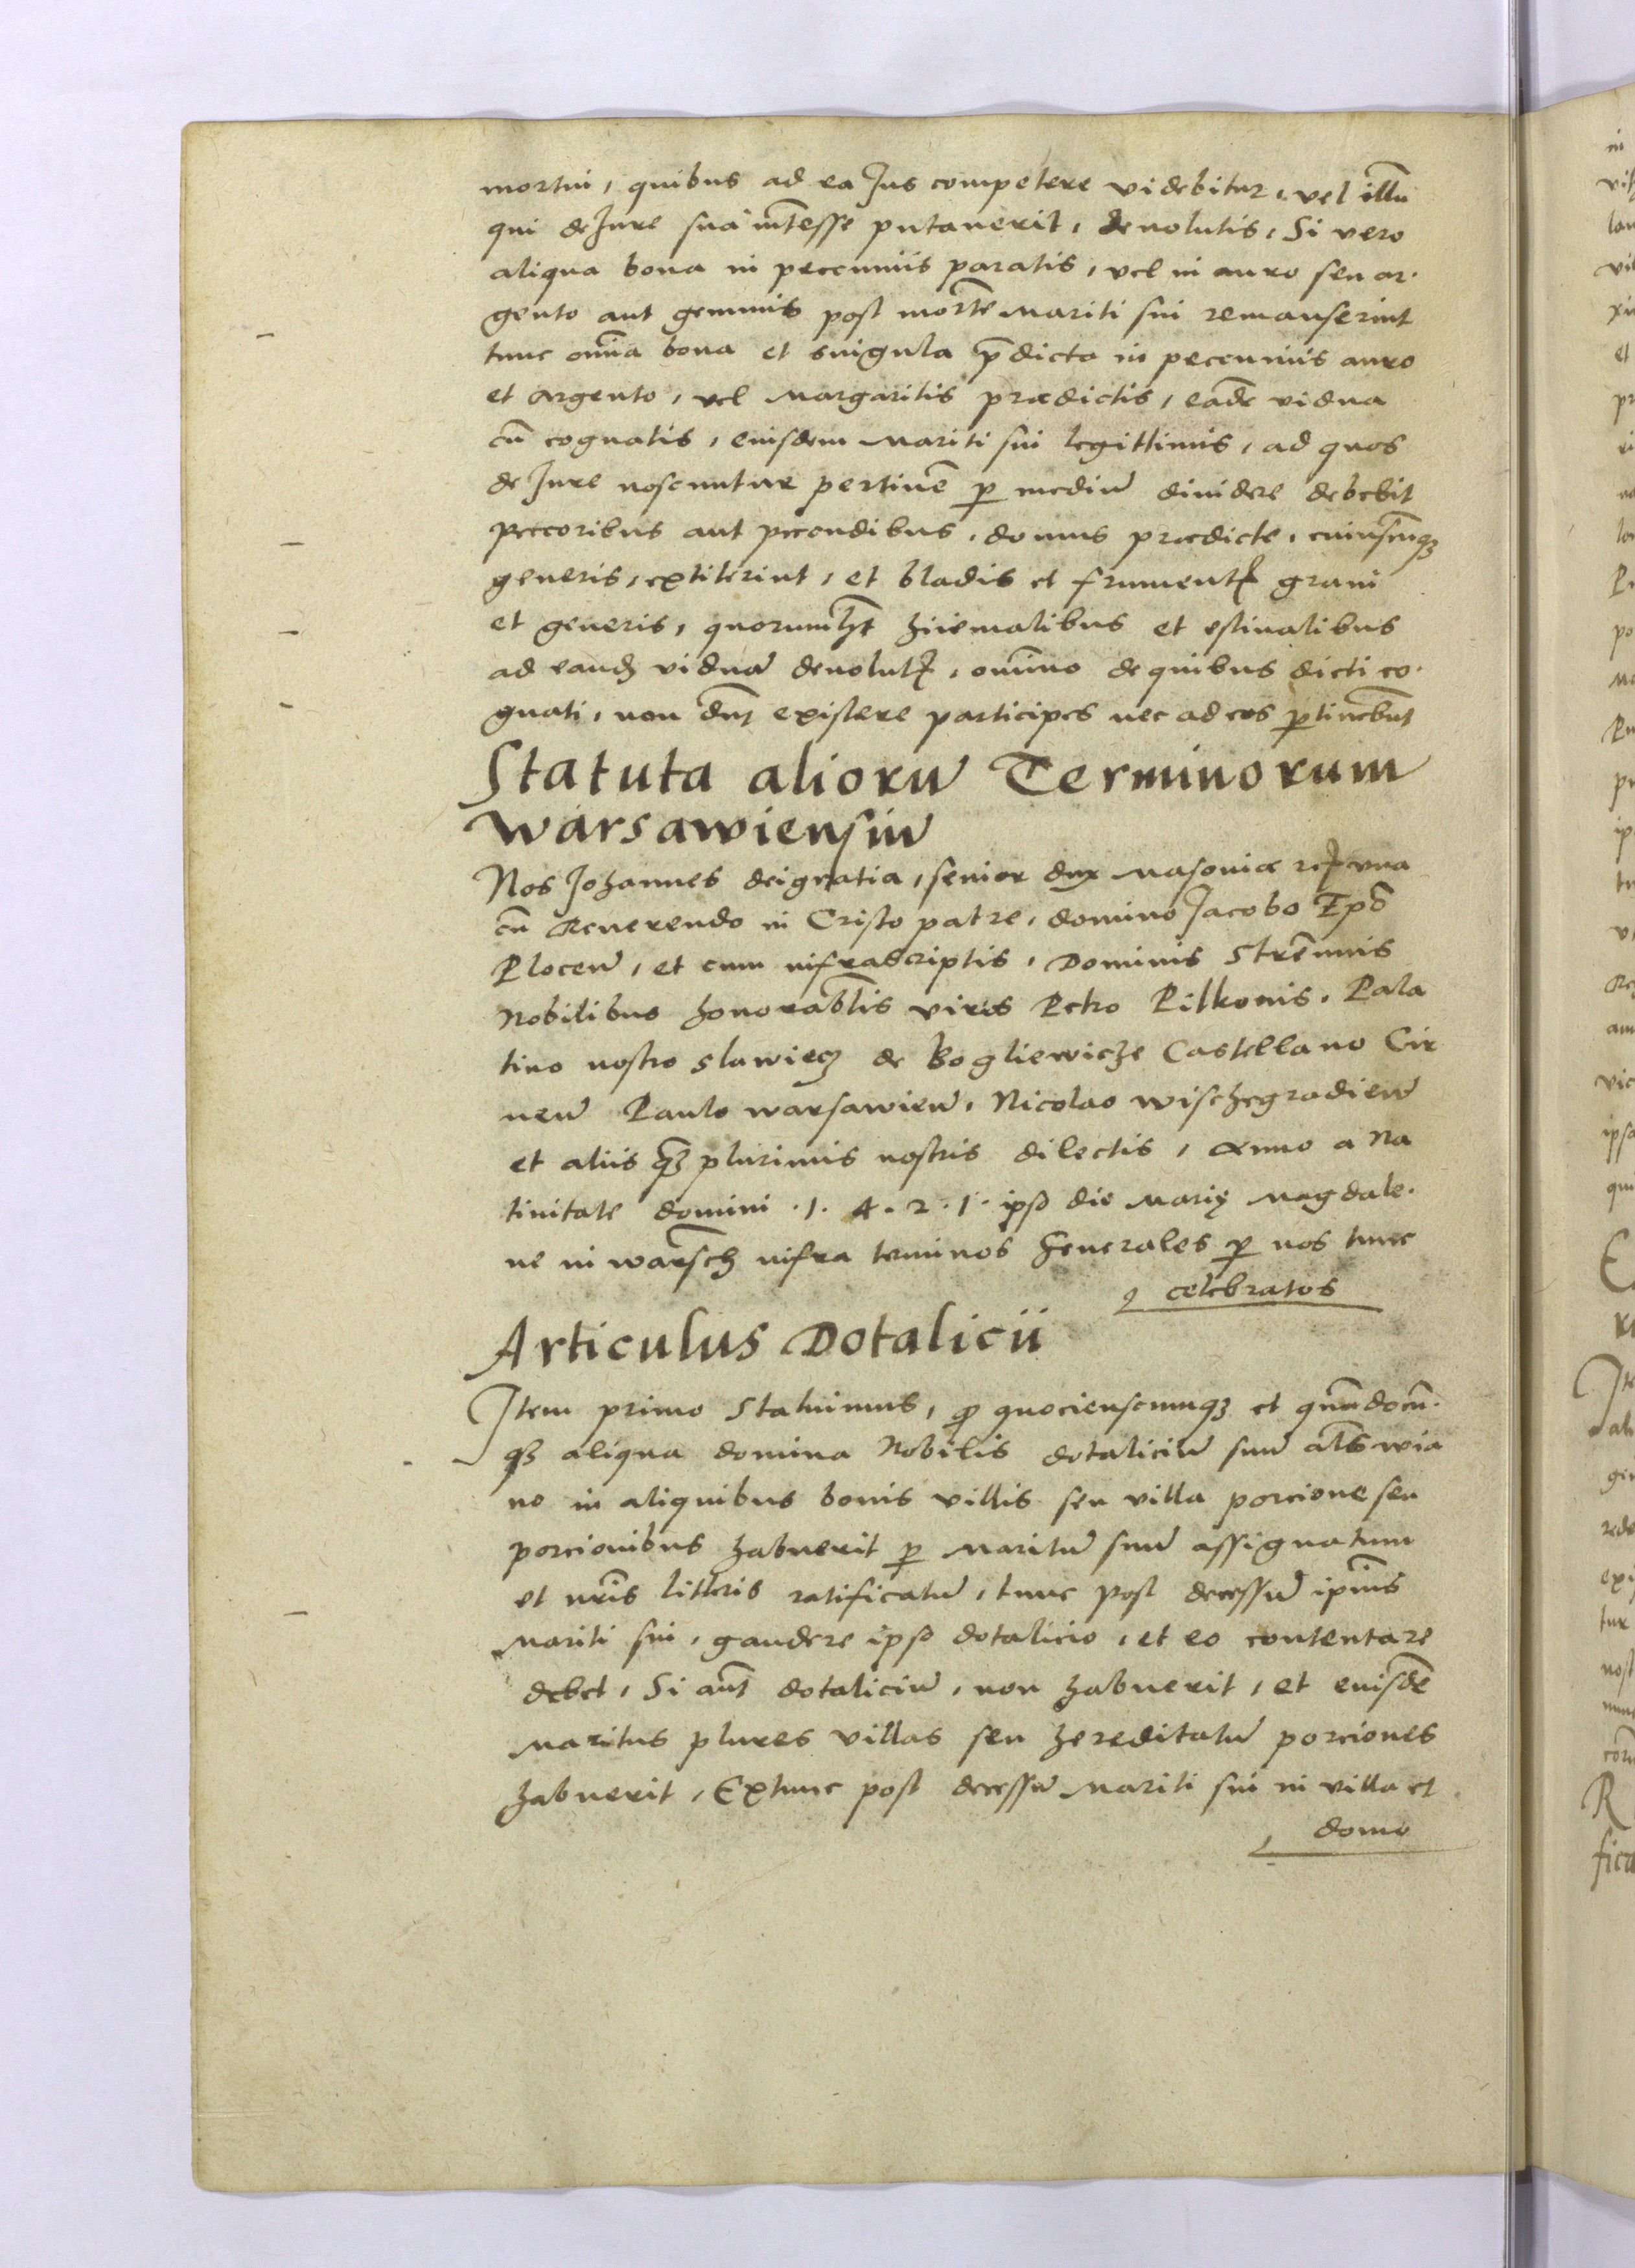 mortui, quibus ad ea Jus competere videbitur, vel illū
qui de Jure sua inteēsse putauerit, deuolutis, Si vero
aliqua bona in peccuniis paratis, vel in auro seu ar.
gento aut gemmis post mortē mariti sui remanserint
tunc omīa bona et singula p̄dicta in peccuniis auro
et argento, vel margaritis praedictis, eadē vidua
cū cognatis, eiusdem mariti sui legittimis, ad quos
de Jure noscuntur pertinē̄ ꝑ mediū diuidere debebit
peccoribus aut pecudibus, domus praedicte, cuiuscūqꝫ
generis, extiterint, et bladis et frumentꝭ grani
et generis, quorumlꝫt hiiemalibus et estiualibus
ad eandꝫ viduā deuolutꝭ, omīno de quibus dicti co.
gnati, non dn̄t existere participes nec ad eos ꝑtinebūt
Statuta aliorū Terminorum
warsawiensiū
Nos Johannes dei gratia, senior dux masoniae rꝭ vna
cū Reuerendo in Cristo patre, domino Jacobo Ep̄o
Plocen̄, et cum infrascriptis, Dominis Strēnuis
Nobilibus honorabl̄is viris Petro Pilkonis, Pala
tino nostro slawieꝫ de Bogliewicze Castellano Cir
nen̄ Paulo warsawien̄, Nicolao wischegradien̄
et aliis qꝫ plurimis nostris dilectis, anno a Na
tiuitate domini .1.4.2.1. ipso die Marię Magdale.
ne in warsch̄ infra terminos Generales ꝑ nos tunc
celebratos
Articulus Dotalicii
Item primo Statuimus, ꝙ quociensemuqꝫ et qn̄docū.
qꝫ aliqua domina Nobilis dotaliciū suū al̄s wia
no in aliquibus bonis villis seu villa porcione seu
porcionibus habuerit ꝑ maritū suū assignatum
et nr̄is litteris ratificatū, tunc post decessū ipīus
mariti sui, gaudere ipso dotalicio, et eo contentare
debet, Si aūt dotaliciū, non habuerit, et eiusdē
maritus plures villas seu hereditatū porciones
habuerit, Extunc post decessū mariti sui in villa et
domo